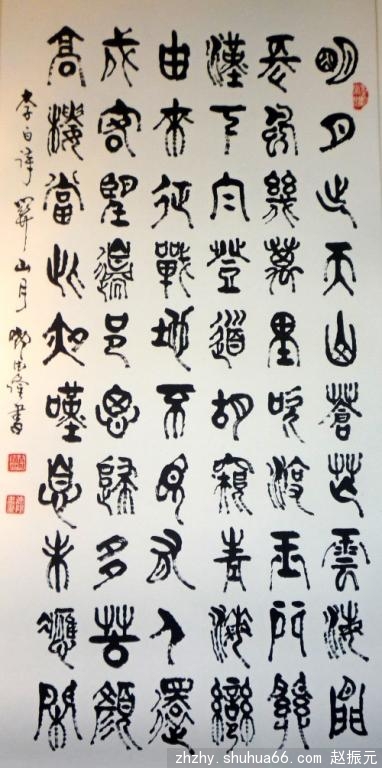 明月出天山蒼茫雲海間
長風幾萬里吹渡玉門關
漢下白登道胡窺青海灣
由來征戰地不見有人還
戍客望邊邑思歸多苦顏
高樓當此夜嘆息未應閑
李白詩關山月 書
zhzhy.shuhua66.com 赵振元